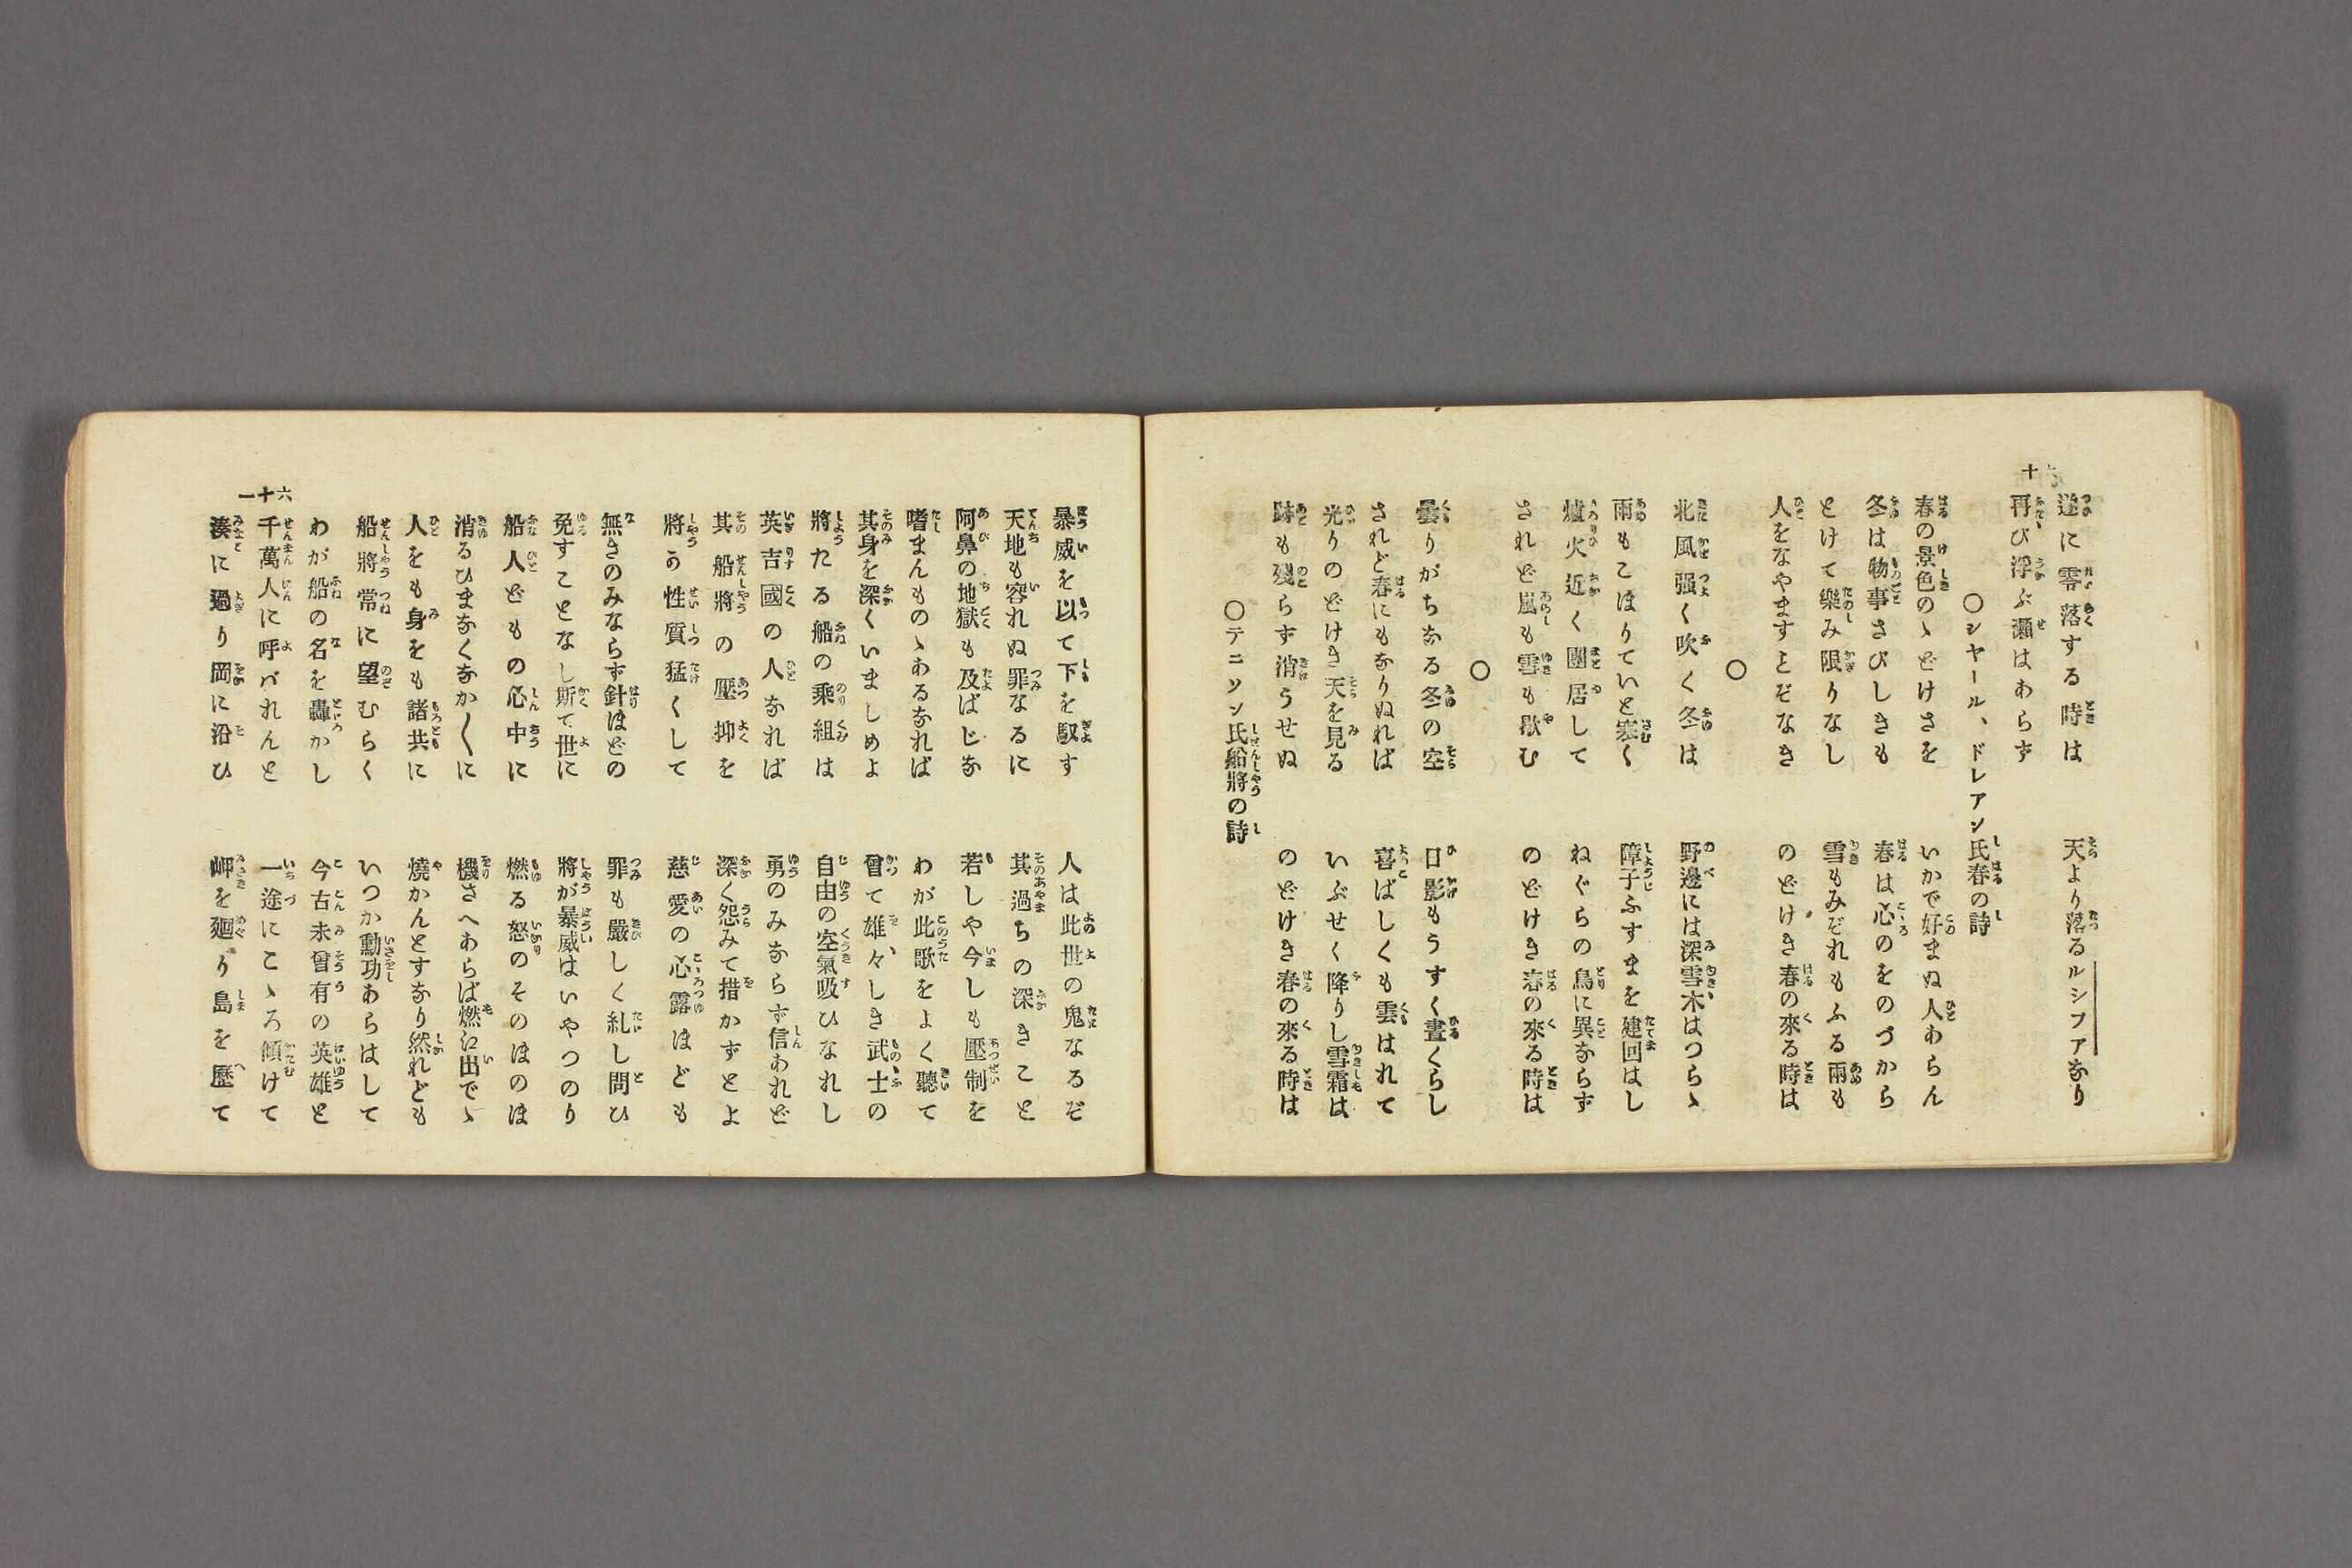 六十
遂に零落する時は　天より落るルシファなり
再び浮ぶ瀬はあらず
〇シヤール、ドレアン氏春の詩
春の景色のゝどけさを　いかで好まぬ人あらん
冬は物事さびしきも　春は心のをのづから
とけて樂み限りなし　雪もみぞれもふる雨も
人をなやますことぞなき　のどけき春の來る時は
〇
北風强く吹く冬は　野邊には深雪木はつらゝ
雨もこほりていと寒く　障子ふすまを建回はし
爐火近く團居して　ねぐらの鳥に異ならず
されど嵐も雪も歇む　のどけき春の來る時は
〇
曇りがちなる冬の空　日影もうすく晝くらし
されど春にもなりぬれば　喜ばしくも雲はれて
光りのどけき天を見る　いぶせく降りし雪霜は
跡も残らず消うせぬ　のどけき春の來る時は
〇テニソン氏船將の詩
暴威を以て下を馭す　人は此世の鬼なるぞ
天地も容れぬ罪なるに　其過ちの深きこと
阿鼻の地獄も及ばじな　若しや今しも壓制を
嗜まんものゝあるなれば　わが此歌をよく聽て
其身を深くいましめよ　曾て雄々しき武士の
將たる船の乘組は　自由の空氣吸ひなれし
英吉國の人なれば　勇のみならず信あれど
其船將の壓抑を　深く怨みて措かずとよ
將の性質猛くして　慈愛の心露ほども
無きのみならず針ほどの　罪も嚴しく糺し問ひ
免すことなし斯て世に　將が暴威はいやつのり
船人どもの心中に　燃る怒のそのほのほ
消るひまなくなか〱に　機さへあらば燃え出でゝ
人をも身をも諸共に　燒かんとすなり然れども
船將常に望むらく　いつか勳功あらはして
わが船の名を轟かし　今古未曾有の英雄と
千萬人に呼バれんと　一途にこゝろ傾けて
湊に過り岡に沿ひ　岬を廻り島を歷て
六十一